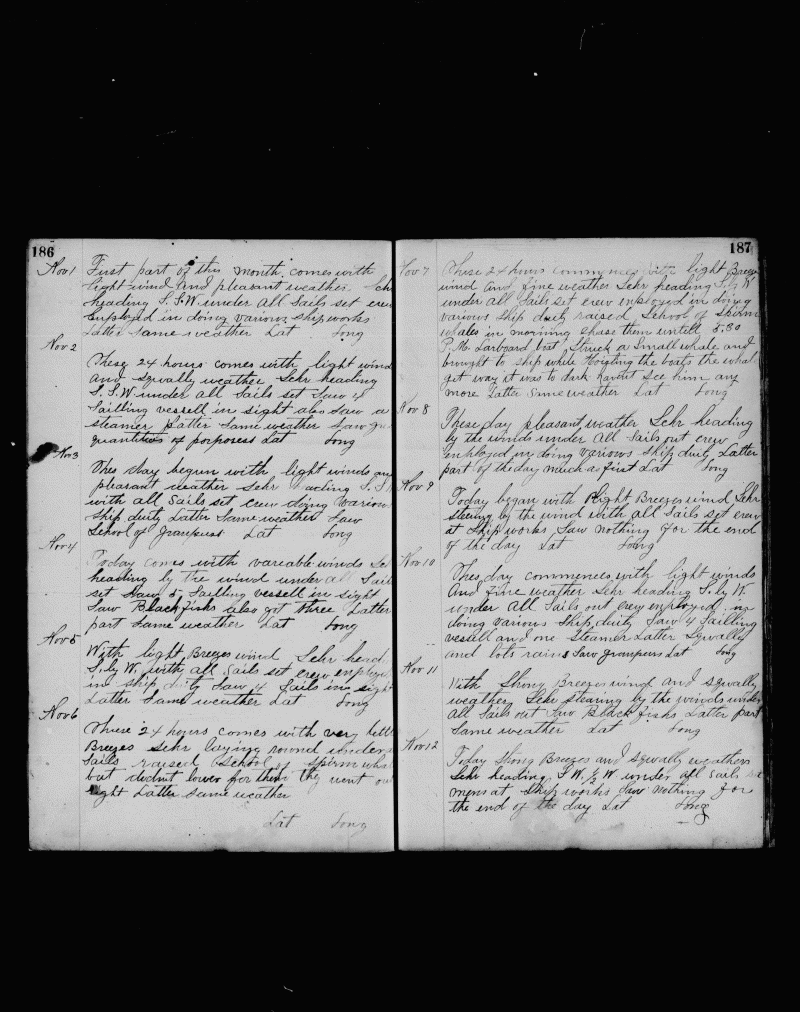 186
Nov 1 First part of this month comes with
light wind and pleasant weather Sch
heading S.S.W under all Sails set crew
Employed in doing various ship works
Latter Same weather Lat Long
Nov 2
These 24 hours comes with light wind
and Squally weather Sehr heading
S.S.W under all Sails set Saw 4
Sailling vessell in sight also Saw a
steamer Latter Same weather Saw
quantities of porposess Lat Long
Nov 3
Thes day begun with light winds an
pleasant weather Sehr eading S.S.
with all Sails set crew doing variou
Ship duty Latter Same weather Saw
School of Grampuss Lat Long
Nov 4
Today comes with vareable winds Se
heading by the wind under all Sail
set Saw 5 Sailling vessell in sight
Saw Black Fishs also got three Latter
part Same weather Lat Long
Nov 5
With light Breezes wind Sehr head
S. by W. with all Sails set crew employe
in ship duty Saw 4 Sails in sight
Latter Same weather Lat Long
Nov 6
These 24 hours comes with very little
Breezes Sehr laying round under
Sails raised School of Spirm wha
but dednt lower for them they went ou
sight Latter Same weather
Lat Long
187
Nov 7 These 24 hours commences with light Breeze
wind and fine weather Sehr heading S. by W
under all Sails set crew employed in doing
various ship duty raised School of Spirm
whales in morning chase them untill 5.30
P.M. Larboard boat Struck a Small whale and
brought to ship while Hoigting the boats the whal
got way it was to dark havent See him any
more Latter Same weather Lat Long
Nov 8
These day pleasant weather Sehr heading
by the winds under all Sails out crew
employed in doing various ship duty Latter
part of the day much as first Lat Long
Nov 9
Today began with light Breezes wind Sehr
steering by the wind with all Sails set crew
at Ship works Saw nothing for the end
of the day Lat Long
Nov 10
Thes day commences with light winds
and fine weather Sehr heading S. by W.
under all Sails out crew employed in
doing various Ship duty Saw 4 Sailling
vessell and one Steamer Latter Squally
and lots rains Saw Grampuss Lat Long
Nov 11
With Strong Breezes wind and Squally
weather Sehr stearing by the winds under
all Sails out Saw Black Fishs Latter part
Same weather Lat Long
Nov 12
Today Strong Breezes and Squally weathers
Sehr heading S.W. ½ W. under all Sails
mens at Ship works Saw nothing for
the end of the day Lat Long